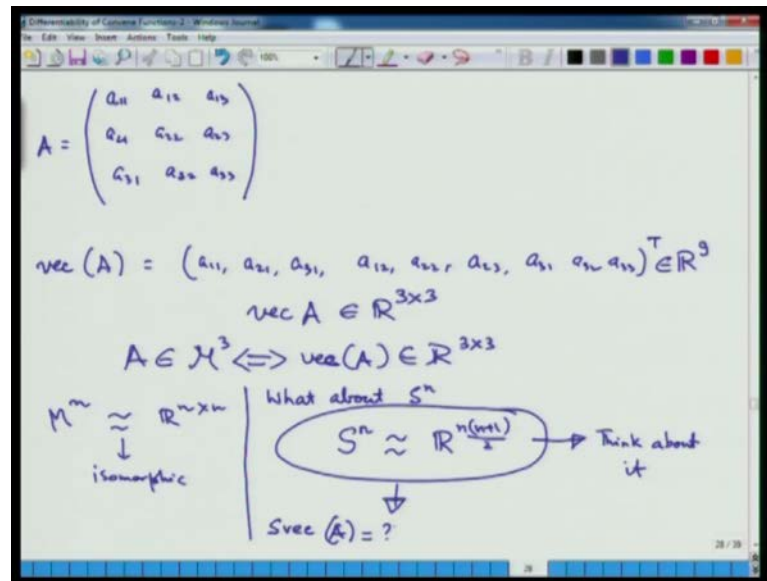 Differentiability of Convex Functions-2 - Windows Journal
File Edit View Insert Actions Tools Help
100%
B I
a11 a12 a13
A = a21 a22 a23
a31 a32 a33
vec (A) = (a11, a21, a31, a12, a22, a23, a31 a32 a33)ᵀ ∈ ℝ⁹
vec A ∈ ℝ³ˣ³
A ∈ M³ <=> vec(A) ∈ ℝ³ˣ³
Mⁿ ≈ ℝⁿˣⁿ
isomorphic
What about Sⁿ
Sⁿ ≈ ℝ^(n(n+1)/2) → Think about it
Svec (A) = ?
28 / 39
28